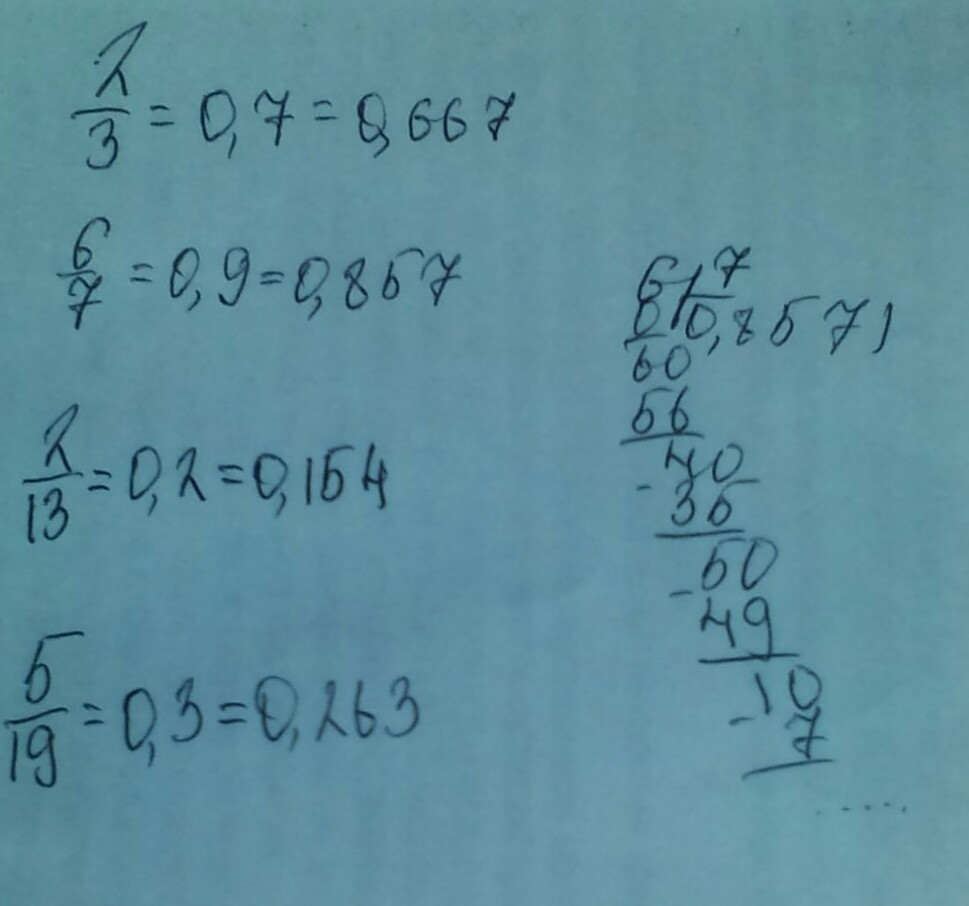 2/3 = 0,7 = 0,667
6/7 = 0,9 = 0,857
2/13 = 0,2 = 0,154
5/19 = 0,3 = 0,263
6 | 7
0 | 0,8571
60
56
- 40
35
- 50
49
- 10
7
.....